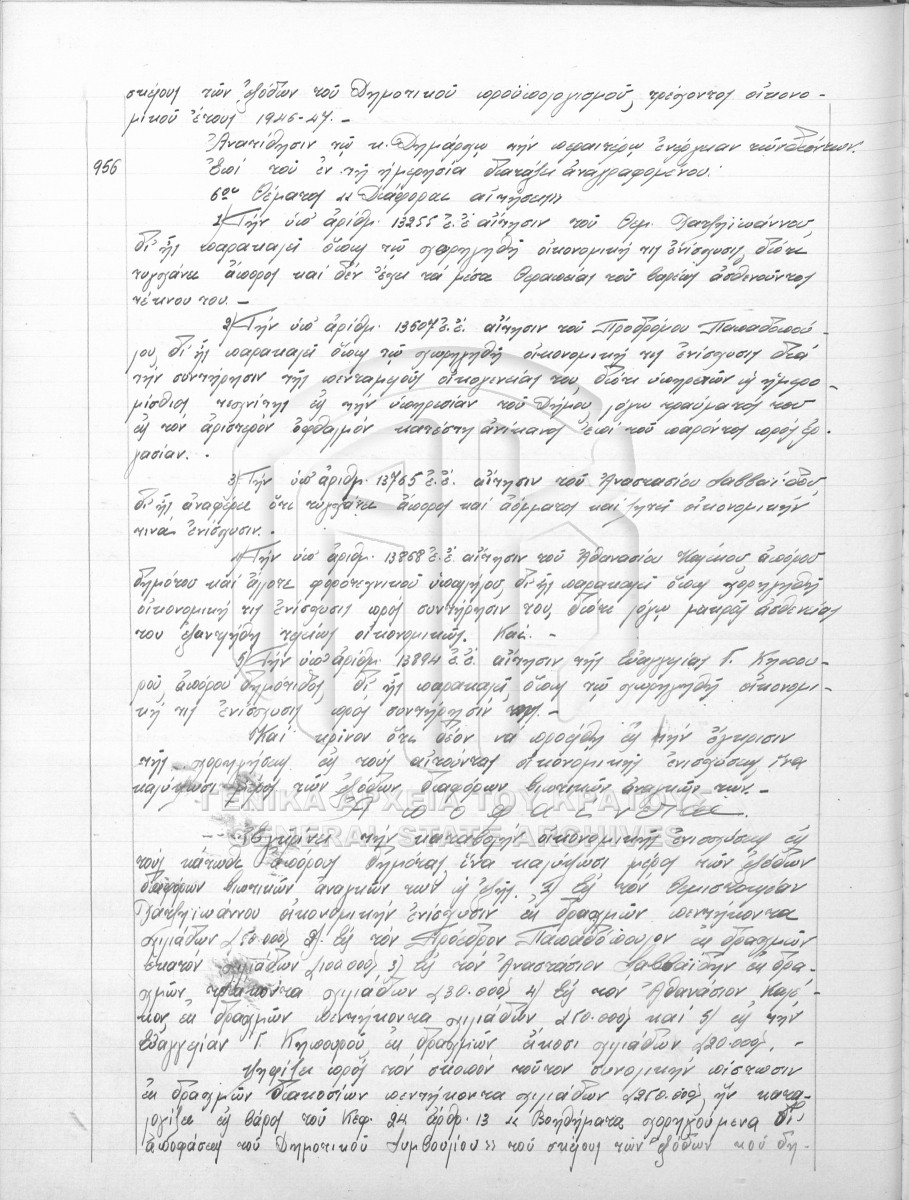 σκέλους τῶν ἐξόδων τοῦ Δημοτικοῦ προϋπολογισμοῦ, τρέχοντος οἰκονο-
μικοῦ ἔτους 1946-47.-
Ἀνατίθησιν τῷ κ. Δημάρχῳ τὴν περαιτέρω ἐνέργειαν τῶν δεόντων.
956 Ἐπὶ τοῦ ἐν τῇ ἡμερησίᾳ διατάξει ἀναγραφομένου.
6ου Θέματος «Διάφορες αἰτήσεις»
1) Τὴν ὑπ' ἀριθμ. 13255 ἐ.ἔ αἴτησιν τοῦ Θεμ. Χατζηϊωάννου,
δι' ἧς παρακαλεῖ ὅπως τῷ χορηγηθῇ οἰκονομική τις ἐνίσχυσις, διότι
τυγχάνει ἄπορος καὶ δὲν ἔχει τὰ μέσα θεραπείας τοῦ βαρέως ἀσθενοῦντος
τέκνου του.-
2) Τὴν ὑπ' ἀριθμ. 13507 ἐ.ἔ. αἴτησιν τοῦ Προδρόμου Παπαδοπού-
λου, δι' ἧς παρακαλεῖ ὅπως τῷ χορηγηθῇ οἰκονομική τις ἐνίσχυσις διὰ
τὴν συντήρησιν τῆς πενταμελοῦς οἰκογενείας του, διότι ὑπηρετῶν ὡς ἡμερο-
μίσθιος τεχνίτης εἰς τὴν ὑπηρεσίαν τοῦ Δήμου, λόγῳ τραύματός του
εἰς τὸν ἀριστερὸν ὀφθαλμὸν κατέστη ἀνίκανος ἐπὶ τοῦ παρόντος πρὸς ἐρ-
γασίαν.-
3) Τὴν ὑπ' ἀριθμ. 13765 ἐ.ἔ. αἴτησιν τοῦ Ἀναστασίου Σαββαΐδου,
δι' ἧς ἀναφέρει ὅτι τυγχάνει ἄπορος καὶ ἀόμματος καὶ ζητεῖ οἰκονομικήν
τινα ἐνίσχυσιν.-
4) Τὴν ὑπ' ἀριθμ. 13868 ἐ.ἔ αἴτησιν τοῦ Ἀθανασίου ἀπόρου
δημότου καὶ ἄλλοτε φοροτεχνικοῦ ὑπαλλήλου, δι' ἧς παρακαλεῖ ὅπως χορηγηθῇ
οἰκονομική τις ἐνίσχυσις πρὸς συντήρησίν του, διότι λόγῳ μακρᾶς ἀσθενείας
του ἐξηντλήθη τελείως οἰκονομικῶς. Καί.-
5) Τὴν ὑπ' ἀριθμ. 13894 ἐ.ἔ. αἴτησιν τῆς Εὐαγγελίας Γ. Κηπου-
ροῦ, ἀπόρου δημότιδος, δι' ἧς παρακαλεῖ, ὅπως τῇ χορηγηθῇ οἰκονομι-
κή τις ἐνίσχυσις πρὸς συντήρησίν της.-
Καὶ κρίνον ὅτι δέον νὰ προέλθῃ εἰς τὴν ἔγκρισιν
τῆς χορηγήσεως εἰς τοὺς αἰτοῦντας οἰκονομικῆς ἐνισχύσεως, ἵνα
καλύψωσι μέρος τῶν ἐξόδων, διαφόρων βιωτικῶν ἀναγκῶν των.-
Ἀποφαίνεται
Ἐγκρίνει τὴν καταβολὴν οἰκονομικῆς ἐνισχύσεως εἰς
τοὺς κάτωθι ἀπόρους δημότας, ἵνα καλύψωσι μέρος τῶν ἐξόδων
διαφόρων βιωτικῶν ἀναγκῶν των ὡς ἑξῆς. 1) Εἰς τὸν Θεμιστοκλέα
Χατζηϊωάννου οἰκονομικὴν ἐνίσχυσιν ἐκ δραχμῶν πεντήκοντα
χιλιάδων (50.000) 2) Εἰς τὸν Πρόεδρον Παπαδόπουλον ἐκ δραχμῶν
ἑκατὸν χιλιάδων (100000) 3) Εἰς τὸν Ἀναστάσιον Σαββαΐδην ἐκ δρα-
χμῶν τριάκοντα χιλιάδων (30.000) 4) Εἰς τὸν Ἀθανάσιον
ἐκ δραχμῶν πεντήκοντα χιλιάδων (50.000) καὶ 5) εἰς τὴν
Εὐαγγελίαν Γ. Κηπουροῦ ἐκ δραχμῶν εἴκοσι χιλιάδων (20.000).-
Ψηφίζει πρὸς τὸν σκοπὸν τοῦτον συνολικὴν πίστωσιν
ἐκ δραχμῶν διακοσίων πεντήκοντα χιλιάδων (250.000) ἣν κατα-
λογίζει εἰς βάρος τοῦ Κεφ. 24 ἄρθρ. 13 «Βοηθήματα χορηγούμενα δι'
ἀποφάσεως τοῦ Δημοτικοῦ Συμβουλίου» τοῦ σκέλους τῶν ἐξόδων τοῦ δη-
ΓΕΝΙΚΑ ΑΡΧΕΙΑ ΤΟΥ ΚΡΑΤΟΥΣ
GENERAL STATE ARCHIVES